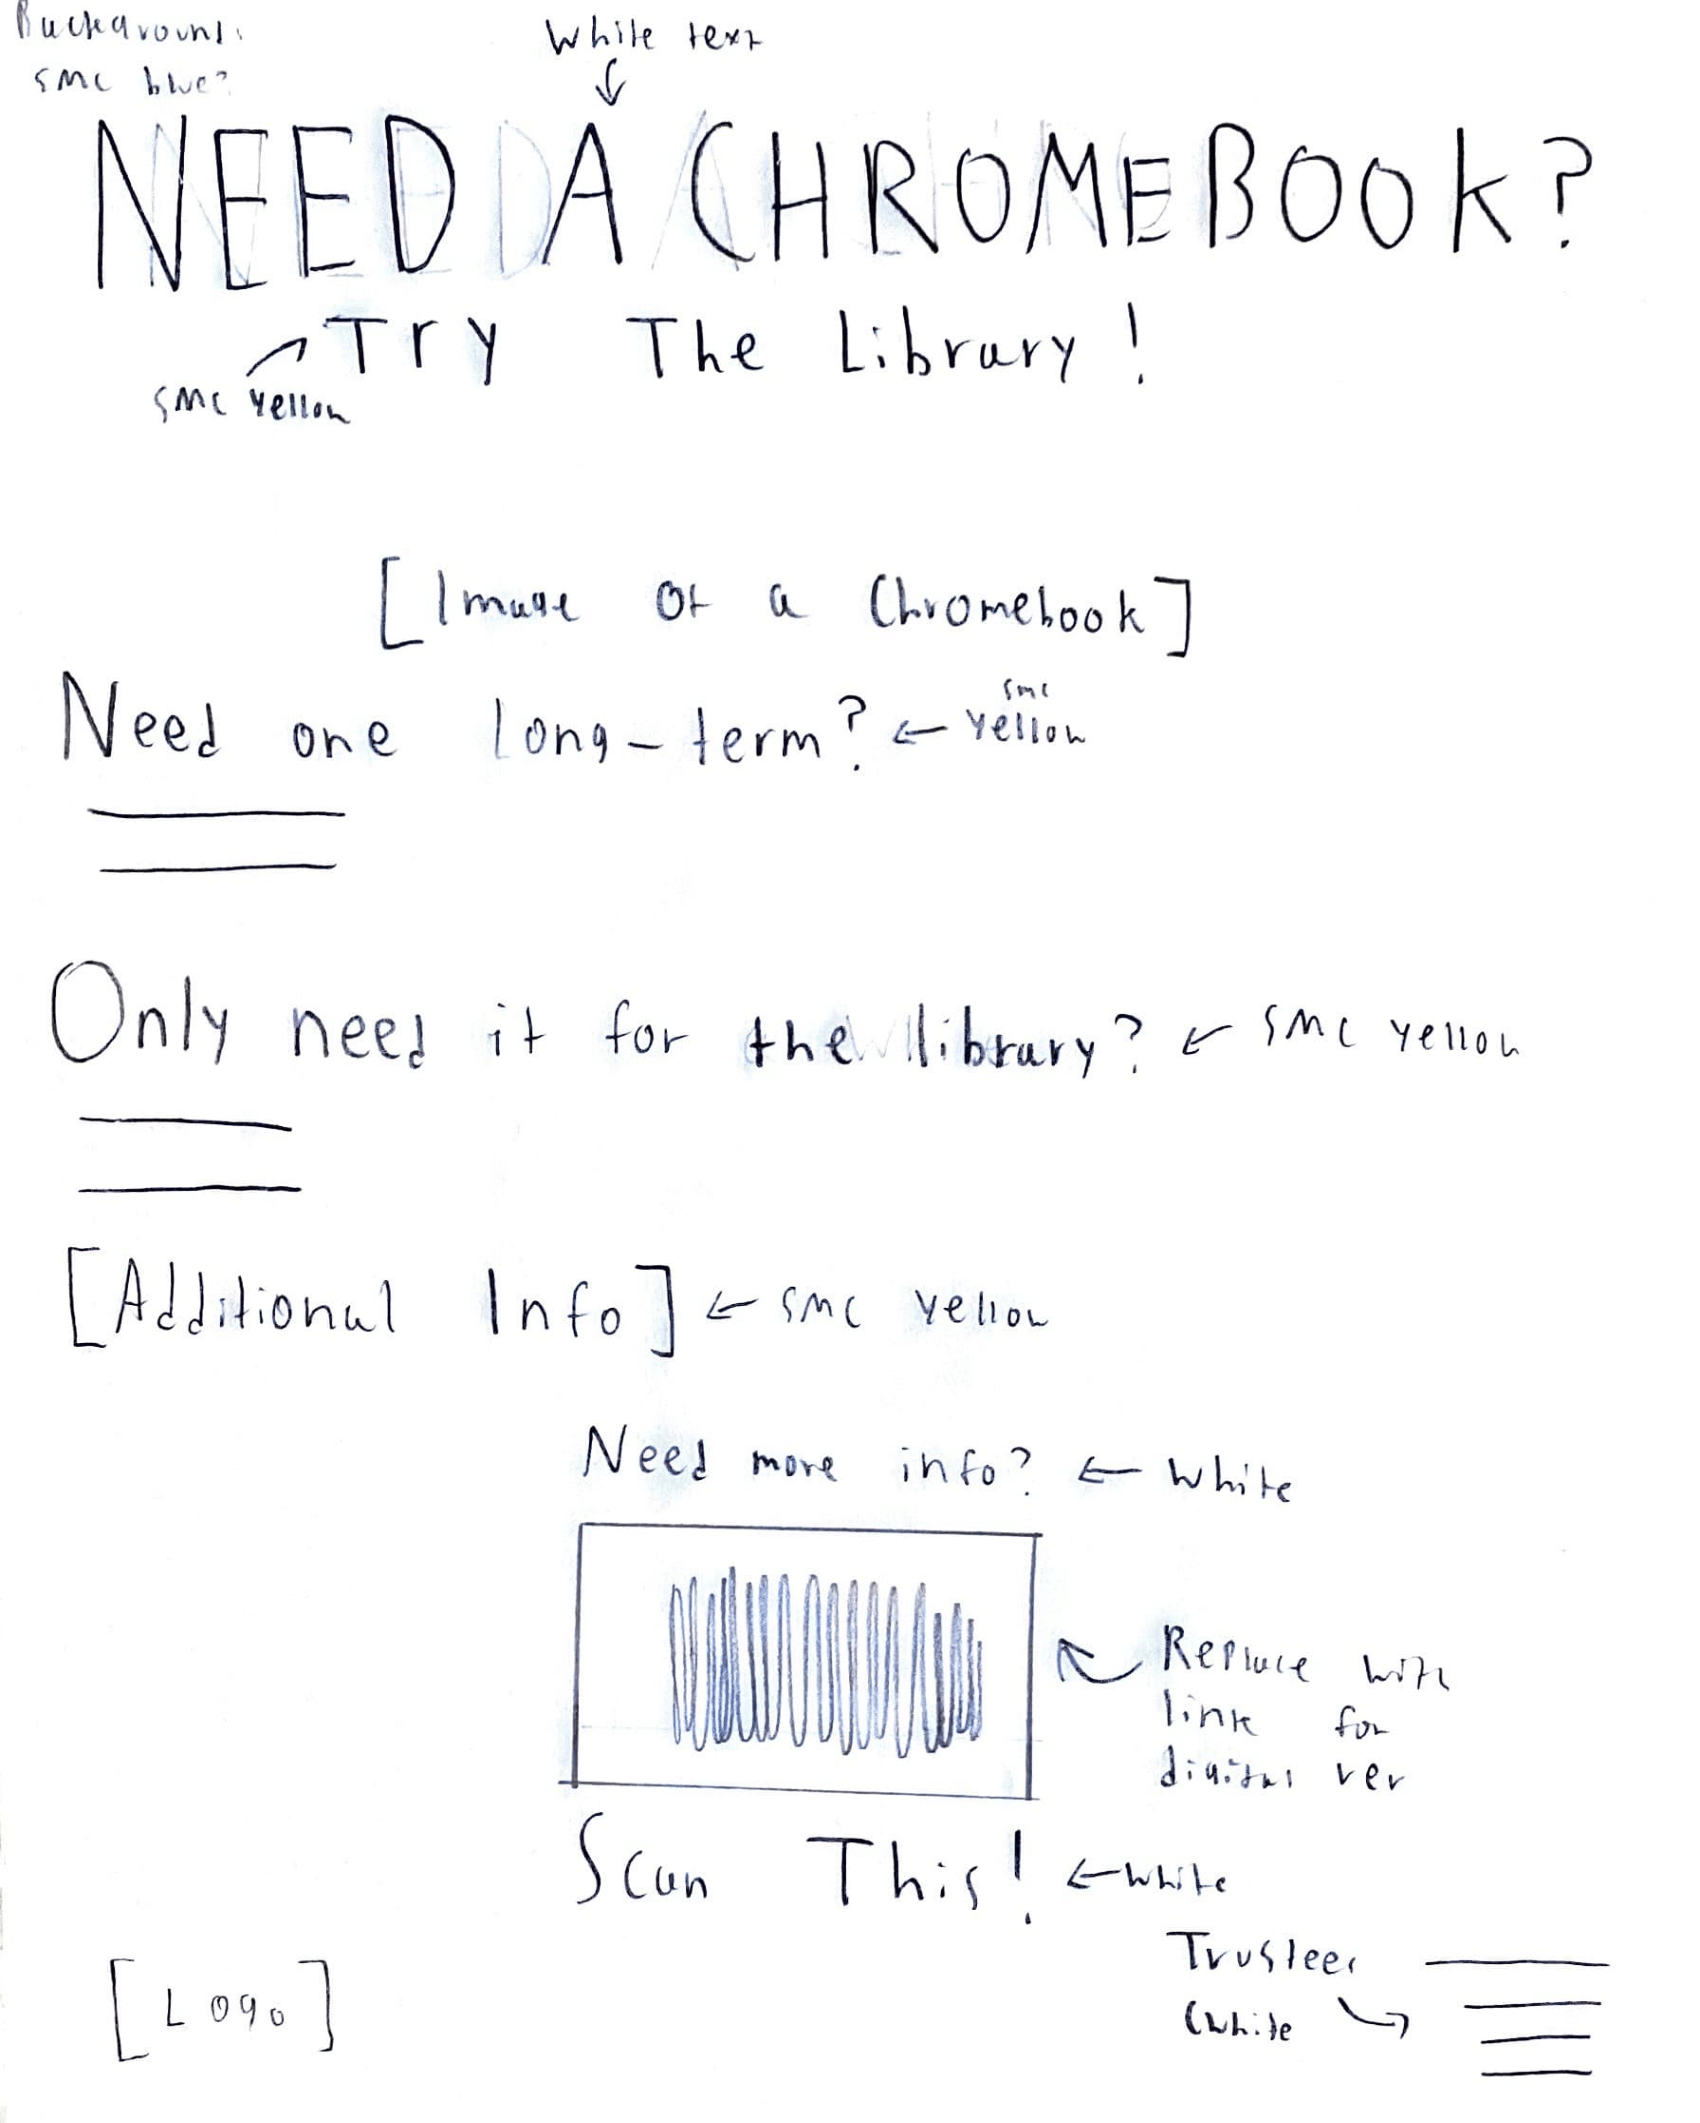 Background:
SMC blue?
White text
NEED A CHROMEBOOK?
Try The Library!
SMC Yellow
[Image of a Chromebook]
Need one long-term? ← SMC Yellow
Only need it for the library? ← SMC Yellow
[Additional Info] ← SMC Yellow
Need more info? ← White
Replace with
link for
digital ver
Scan This! ← White
Trustees
(White
[Logo]